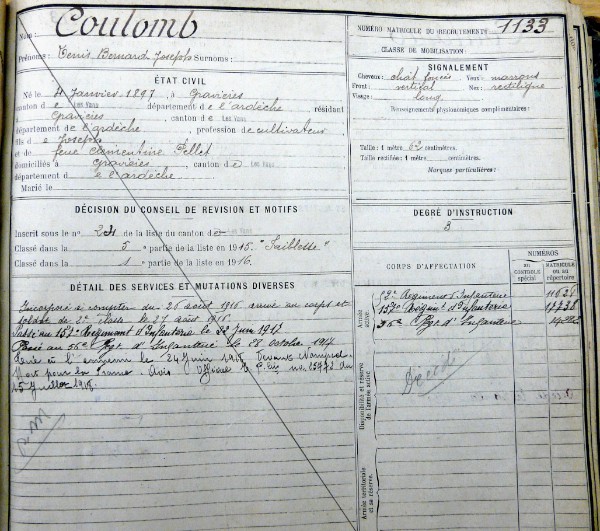 Nom : Coulomb
Prénoms : Denis Bernard Joseph Surnoms :
ÉTAT CIVIL
Né le 4 Janvier 1897, à Gravières
canton de Les Vans département de l'ardèche, résidant
Gravières, canton de Les Vans
département de l'ardèche, profession de cultivateur
fils de Joseph
et de feue Clémentine Pellet
domiciliés à Gravières, canton de Les Vans
département de l'ardèche
Marié le
DÉCISION DU CONSEIL DE REVISION ET MOTIFS
Inscrit sous le n° 24 de la liste du canton de
Classé dans la 5 partie de la liste en 1915. "Faiblesse"
Classé dans la 1 partie de la liste en 1916.
DÉTAIL DES SERVICES ET MUTATIONS DIVERSES
Incorporé à compter du 26 août 1916 arrivé au corps et
soldat de 2e classe le 27 août 1916.
Passé au 157e Régiment d'Infanterie le 22 Juin 1917
Passé au 56e Rgt d'Infanterie le 28 octobre 1917
à l'ennemi le 24 Juin 1918
Mort pour la France Avis Officiel no 15972 du
15 Juillet 1918.
NUMÉRO MATRICULE DU RECRUTEMENT : 1133
CLASSE DE MOBILISATION :
SIGNALEMENT
Cheveux : chât foncés Yeux : marrons
Front : vertical Nez : rectiligne
Visage : long
Renseignements physionomiques complémentaires :
Taille : 1 mètre 62 centimètres.
Taille rectifiée : 1 mètre centimètres.
Marques particulières :
DEGRÉ D'INSTRUCTION
3
CORPS D'AFFECTATION
NUMÉROS
AU CONTRÔLE spécial
MATRICULE OU AU répertoire
Armée active.
52e Régiment d'Infanterie
157e Régiment d'Infanterie
56e Rgt d'Infanterie
Disponibilité et réserve de l'armée active.
Décédé
Armée territoriale et sa réserve.